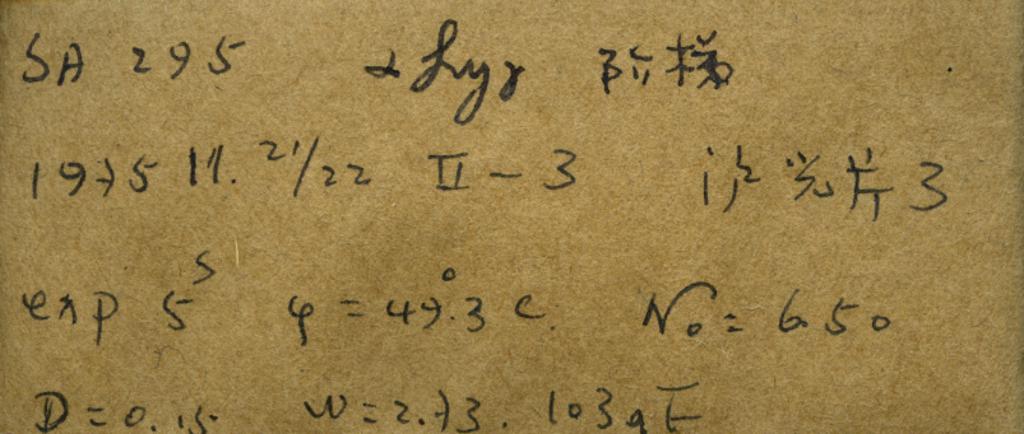 SA 295 α Lyr 阶梯
1975 11. 21/22 II - 3 滤光片 3
exp 5ˢ φ = 47.°3 C. N₀ = 6.50
D = 0.15 W = 2.73. 103a E